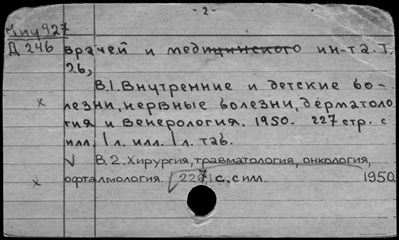 - 2 -
Чпу927
Д 246 врачей и медицинского ин-та. Т.
26,
В.1. Внутренние и детские бо-
х лезни, нервные болезни, дерматоло
гия и венерология. 1950. 227 стр. с
илл, 1 л. илл. 1 л. таб.
√ В.2. Хирургия, травматология, онкология,
х офталмология. 227 с, с илл. 1950